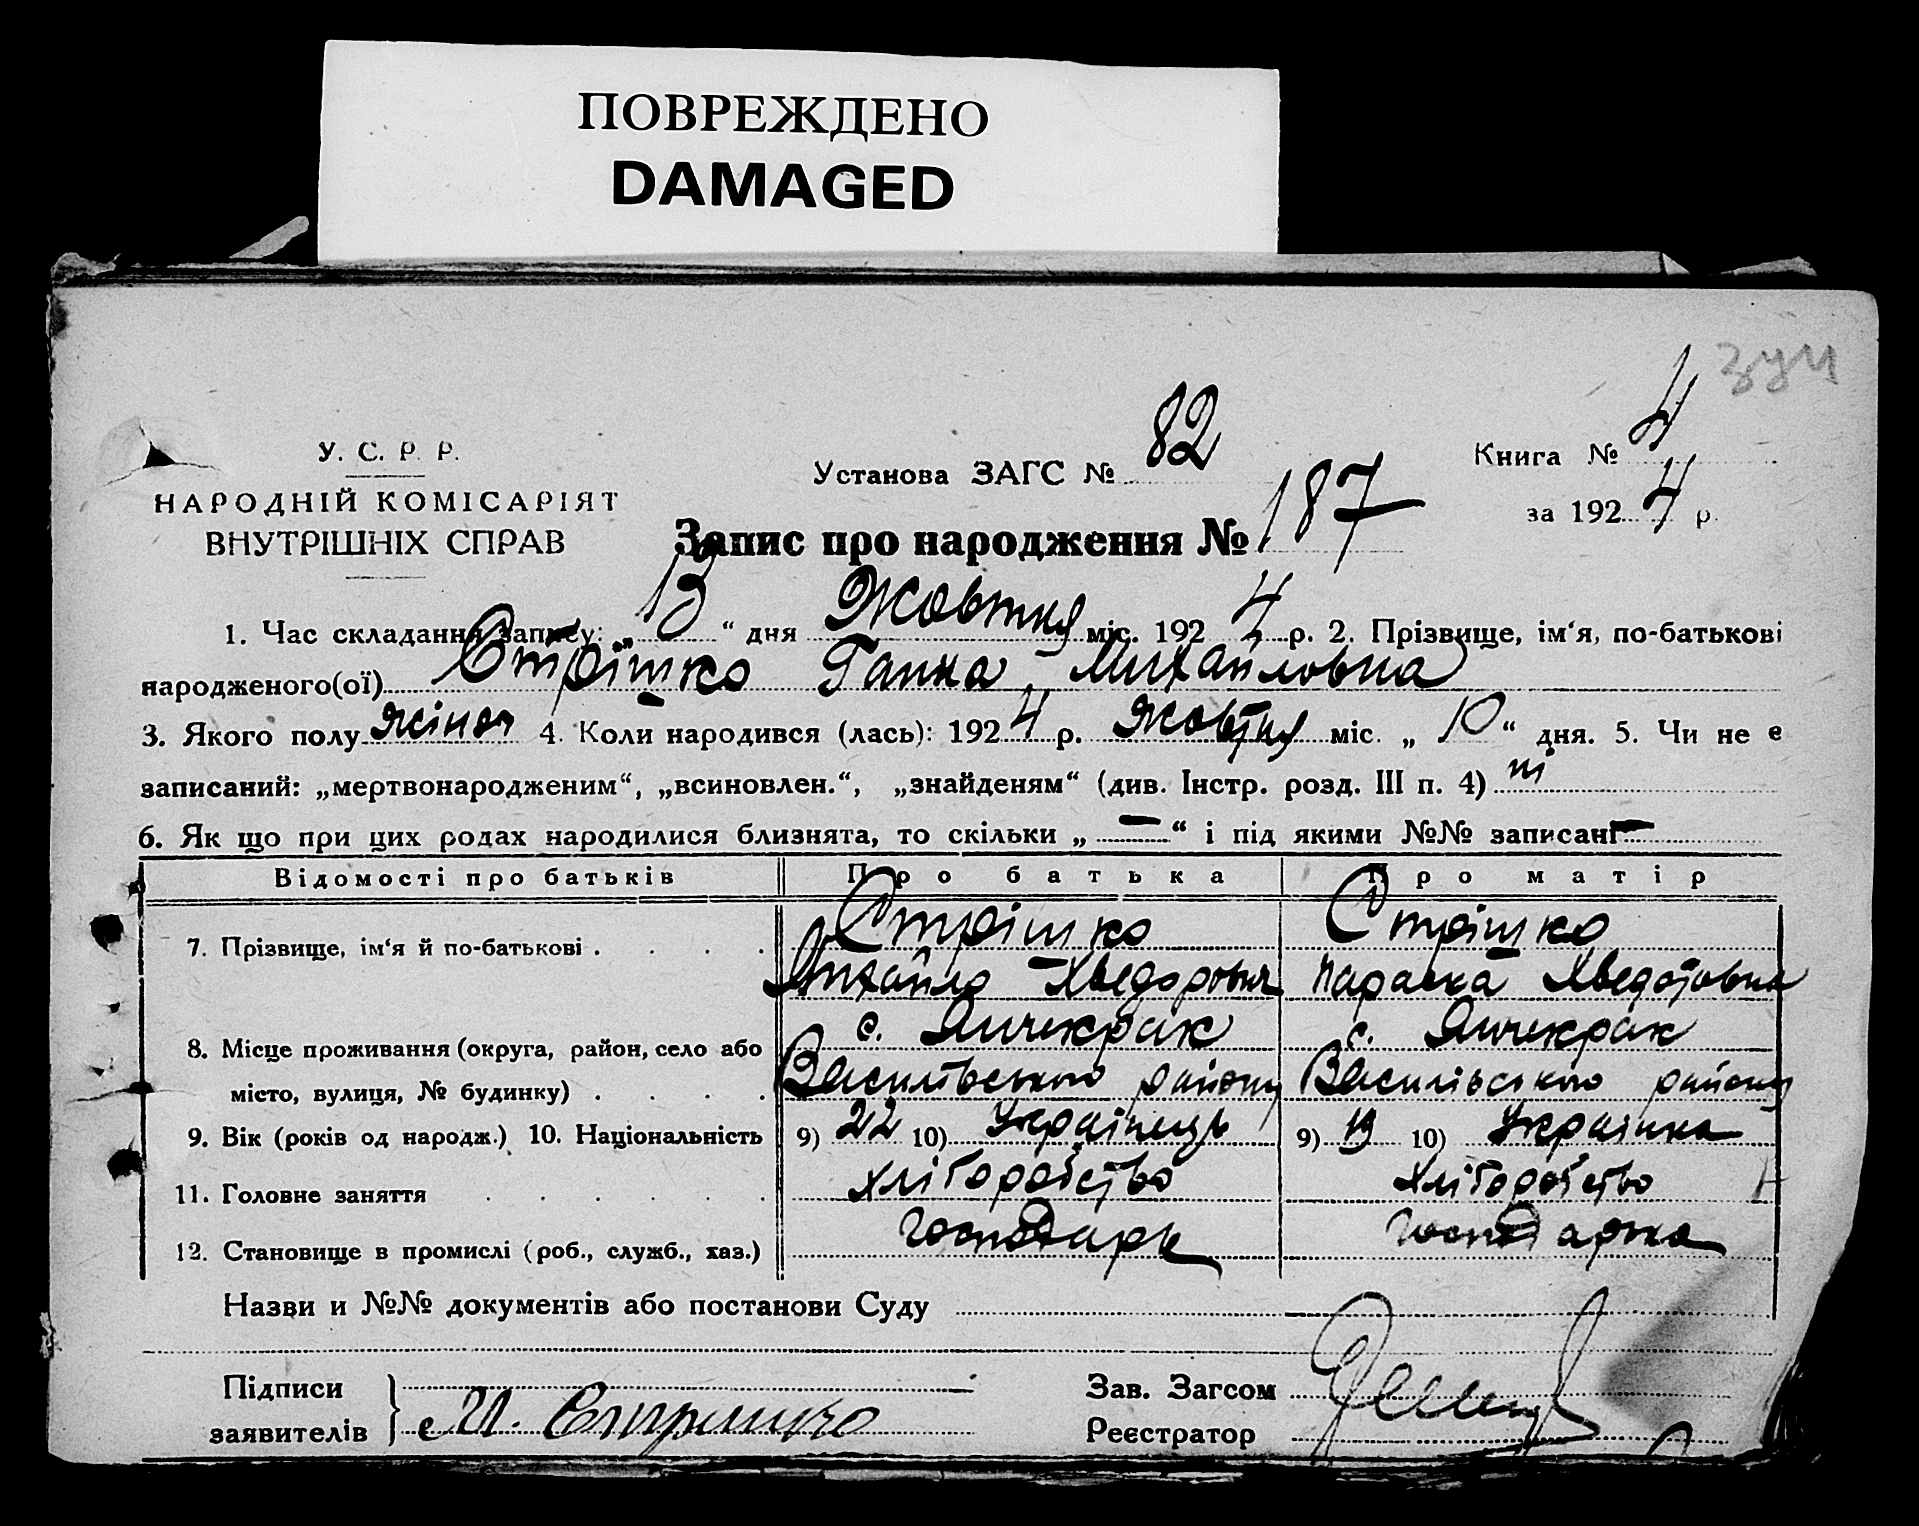 ПОВРЕЖДЕНО
DAMAGED
У. С. Р. Р.
НАРОДНІЙ КОМІСАРІЯТ
ВНУТРІШНІХ СПРАВ
Установа ЗАГС № 82
Книга № 4
за 1924 р.
Запис про народження № 187
1. Час складання запису: „13“ дня Жовтня міс. 1924 р. 2. Прізвище, ім‘я, по-батькові
народженого(ої) Стрішко Ганна Михайловна
3. Якого полу жіноч 4. Коли народився (лась): 1924 р. Жовтня міс. „10“ дня. 5. Чи не є
записаний: „мертвонародженим“, „всиновлен.“, „знайденям“ (див. Інстр. розд. III п. 4) ні
6. Як що при цих родах народилися близнята, то скільки „ — “ і під якими №№ записані —
Відомості про батьків Про батька Про матір
7. Прізвище, ім‘я й по-батькові . . . . Стрішко Стрішко
Михайло Хведорович Параска Хведотовна
с. Янчекрак с. Янчекрак
8. Місце проживання (округа, район, село або
місто, вулиця, № будинку) . . . . Василівського району Василівського району
9. Вік (років од народж.) 10. Національність 9) 22 10) Українець 9) 19 10) Українка
11. Головне заняття . . . . . . хліборобство хліборобство
12. Становище в промислі (роб., служб., хаз.) господарь господарка
Назви и №№ документів або постанови Суду
Підписи
заявителів М. Стришко
Зав. Загсом
Реєстратор